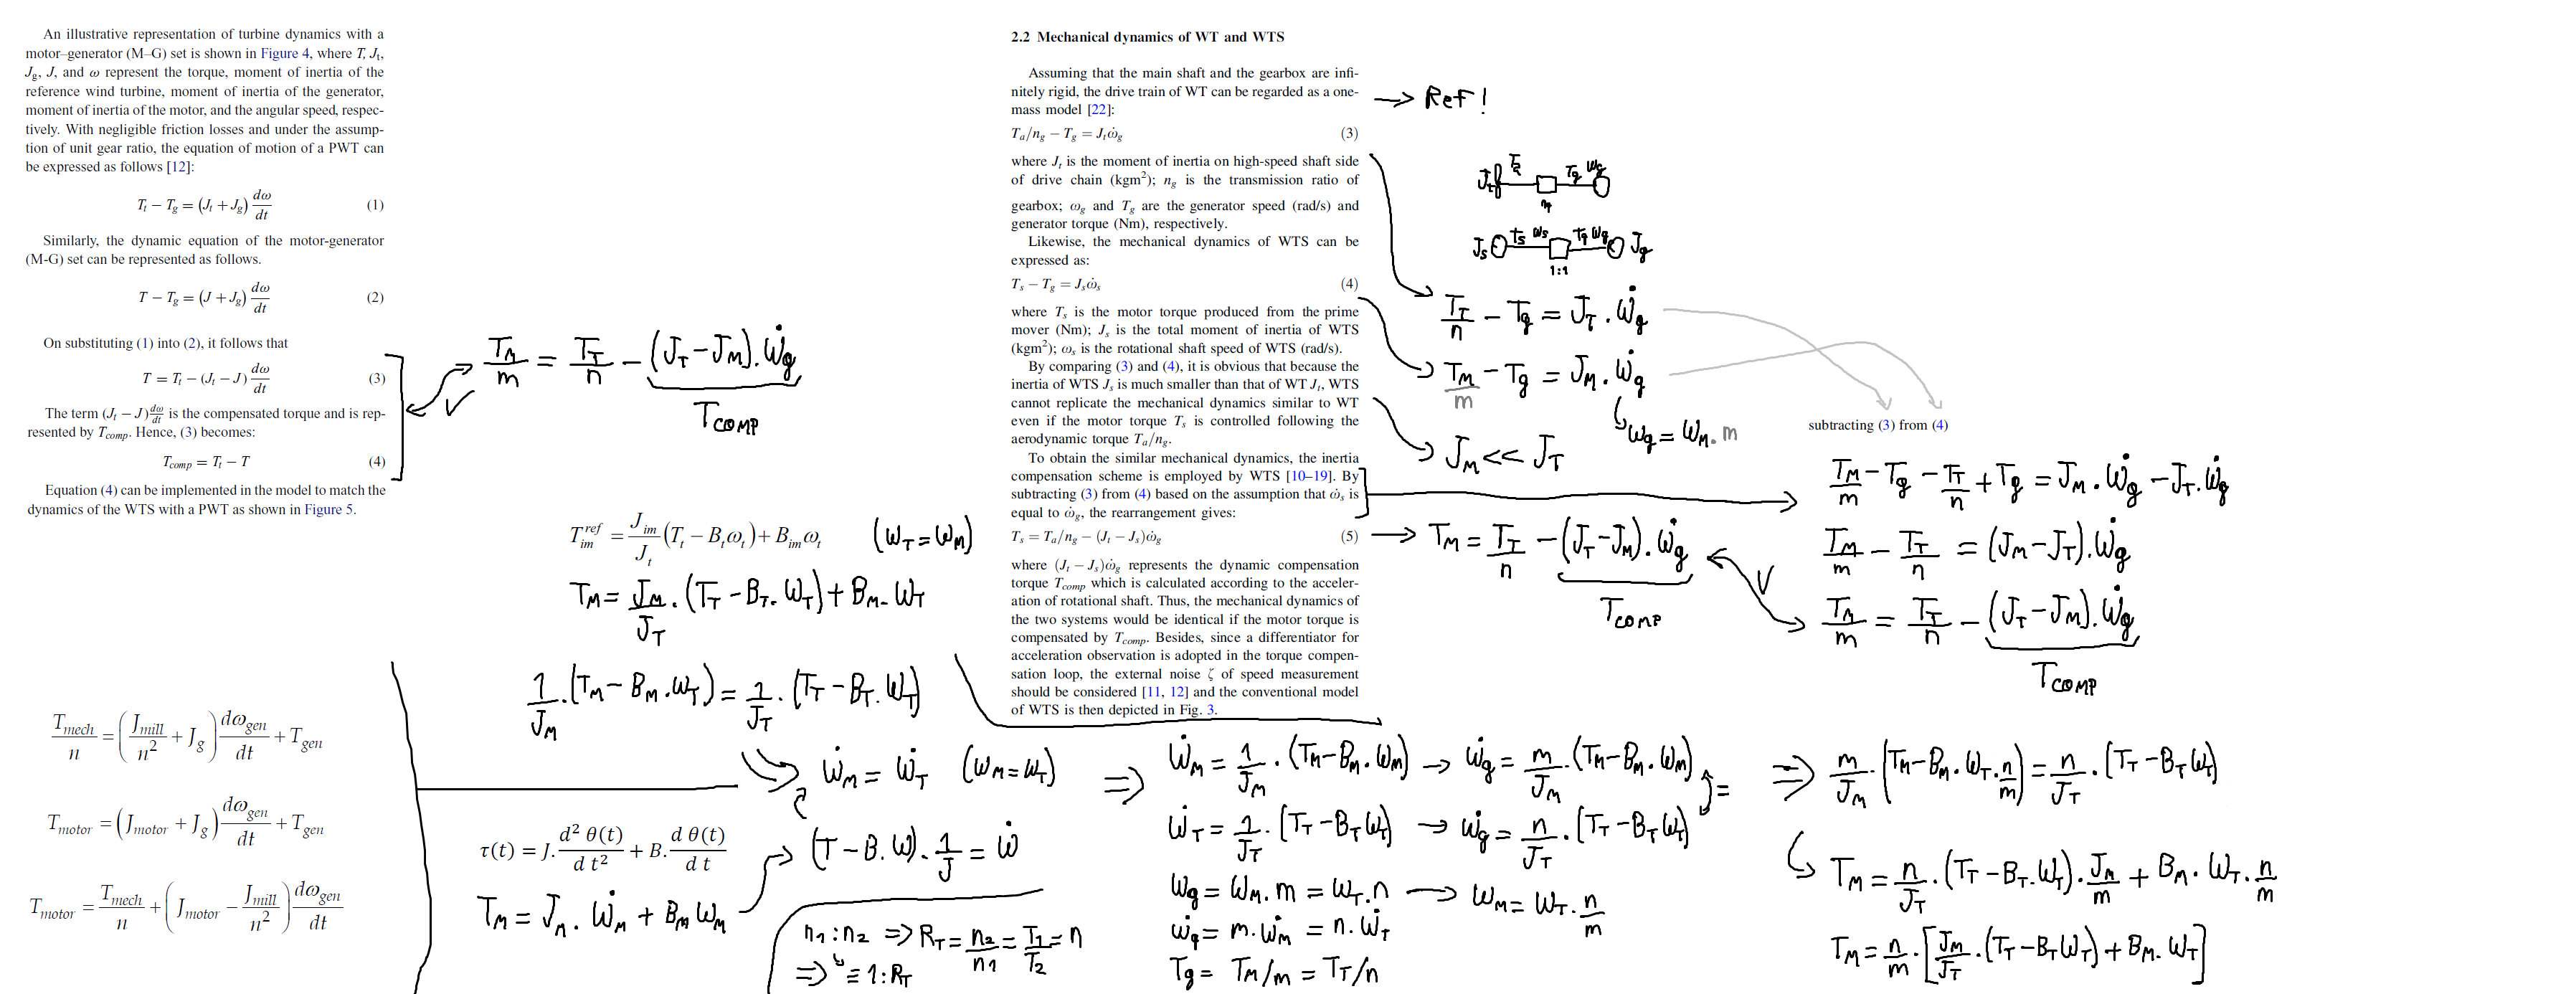 An illustrative representation of turbine dynamics with a
motor–generator (M–G) set is shown in Figure 4, where T, Jt,
Jg, J, and ω represent the torque, moment of inertia of the
reference wind turbine, moment of inertia of the generator,
moment of inertia of the motor, and the angular speed, respec-
tively. With negligible friction losses and under the assump-
tion of unit gear ratio, the equation of motion of a PWT can
be expressed as follows [12]:
Tt − Tg = (Jt + Jg) dω/dt (1)
Similarly, the dynamic equation of the motor-generator
(M-G) set can be represented as follows.
T − Tg = (J + Jg) dω/dt (2)
On substituting (1) into (2), it follows that
T = Tt − (Jt − J) dω/dt (3)
The term (Jt − J) dω/dt is the compensated torque and is rep-
resented by Tcomp. Hence, (3) becomes:
Tcomp = Tt − T (4)
Equation (4) can be implemented in the model to match the
dynamics of the WTS with a PWT as shown in Figure 5.
TM/m = TT/n − (JT − JM).ẇg
TCOMP
Tim^ref = Jim/Jt (Tt − Btωt) + Bimωt (WT = WM)
TM = JM/JT . (TT − BT. WT) + BM. WT
1/JM . (TM − BM.WT) = 1/JT . (TT − BT. WT)
ẇM = ẇT (WM = WT)
Tmech/n = (Jmill/n² + Jg) dωgen/dt + Tgen
Tmotor = (Jmotor + Jg) dωgen/dt + Tgen
Tmotor = Tmech/n + (Jmotor − Jmill/n²) dωgen/dt
τ(t) = J. d² θ(t)/d t² + B. d θ(t)/d t
(T − B. W). 1/J = ẇ
TM = JM. ẇM + BM WM
n1 : n2 ⇒ RT = n2/n1 = T1/T2 = n
⇒ ≡ 1 : RT
2.2 Mechanical dynamics of WT and WTS
Assuming that the main shaft and the gearbox are infi-
nitely rigid, the drive train of WT can be regarded as a one-
mass model [22]:
→ Ref !
Ta/ng − Tg = Jtω̇g (3)
where Jt is the moment of inertia on high-speed shaft side
of drive chain (kgm²); ng is the transmission ratio of
gearbox; ωg and Tg are the generator speed (rad/s) and
generator torque (Nm), respectively.
Likewise, the mechanical dynamics of WTS can be
expressed as:
Ts − Tg = Jsω̇s (4)
where Ts is the motor torque produced from the prime
mover (Nm); Js is the total moment of inertia of WTS
(kgm²); ωs is the rotational shaft speed of WTS (rad/s).
By comparing (3) and (4), it is obvious that because the
inertia of WTS Js is much smaller than that of WT Jt, WTS
cannot replicate the mechanical dynamics similar to WT
even if the motor torque Ts is controlled following the
aerodynamic torque Ta/ng.
To obtain the similar mechanical dynamics, the inertia
compensation scheme is employed by WTS [10–19]. By
subtracting (3) from (4) based on the assumption that ω̇s is
equal to ω̇g, the rearrangement gives:
Ts = Ta/ng − (Jt − Js)ω̇g (5)
where (Jt − Js)ω̇g represents the dynamic compensation
torque Tcomp which is calculated according to the acceler-
ation of rotational shaft. Thus, the mechanical dynamics of
the two systems would be identical if the motor torque is
compensated by Tcomp. Besides, since a differentiator for
acceleration observation is adopted in the torque compen-
sation loop, the external noise ζ of speed measurement
should be considered [11, 12] and the conventional model
of WTS is then depicted in Fig. 3.
Tg Wg
Js Ts Ws Tg Wg Jg
1:1
TT/n − Tg = JT . ẇg
TM/m − Tg = JM . ẇg
Wg = WM. m
JM << JT
TM = TT/n − (JT − JM). ẇg
TCOMP
subtracting (3) from (4)
TM/m − Tg − TT/n + Tg = JM. ẇg − JT. ẇg
TM/m − TT/n = (JM − JT). ẇg
TM/m = TT/n − (JT − JM). ẇg
TCOMP
⇒ ẇM = 1/JM . (TM − BM. WM) → ẇg = m/JM . (TM − BM. WM)
ẇT = 1/JT . (TT − BT WT) → ẇg = n/JT . (TT − BT WT)
=
Wg = WM. m = WT. n → WM = WT. n/m
ẇg = m. ẇM = n. ẇT
Tg = TM/m = TT/n
⇒ m/JM . (TM − BM. WT. n/m) = n/JT . (TT − BT WT)
TM = n/JT . (TT − BT. WT). JM/m + BM. WT. n/m
TM = n/m . [JM/JT . (TT − BT WT) + BM. WT]